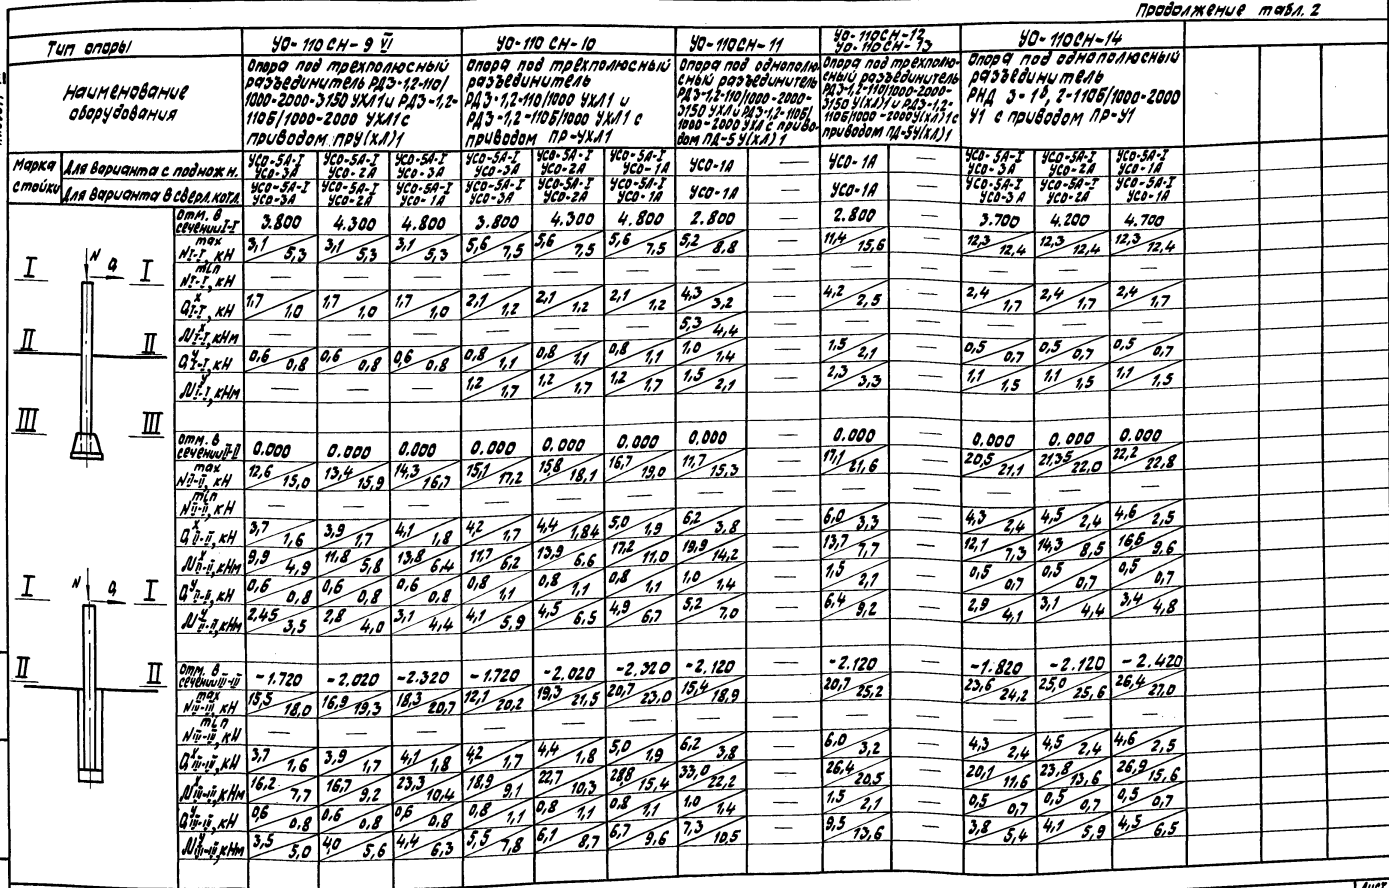 Продолжение табл. 2
Тип опоры УО-110СН-9 VI УО-110СН-10 УО-110СН-11 УО-110СН-12 УО-110СН-13 УО-110СН-14
Наименование оборудования
Опора под трехполюсный разъединитель РДЗ-1,2-110/1000-2000-3150 УХЛ1 и РДЗ-1,2-110Б/1000-2000 УХЛ1 с приводом ПРУ(ХЛ)1
Опора под трехполюсный разъединитель РДЗ-1,2-110/1000 УХЛ1 и РДЗ-1,2-110Б/1000 УХЛ1 с приводом ПР-УХЛ1
Опора под однополюсный разъединитель РДЗ-1,2-110/1000-2000-3150 УХЛ и РДЗ-1,2-110Б/1000-2000 УХЛ с приводом ПД-5У(ХЛ)1
Опора под трехполюсный разъединитель РДЗ-1,2-110/1000-2000-3150 У(ХЛ)1 и РДЗ-1,2-110Б/1000-2000У(ХЛ)1 с приводом ПД-5У(ХЛ)1
Опора под однополюсный разъединитель РНД З-1б, 2-110Б/1000-2000 У1 с приводом ПР-У1
Марка стойки
Для варианта с подножн. УСО-5А-I УСО-3А УСО-5А-I УСО-2А УСО-5А-I УСО-3А УСО-5А-I УСО-3А УСО-5А-I УСО-2А УСО-5А-I УСО-1А УСО-1А — УСО-1А — УСО-5А-I УСО-3А УСО-5А-I УСО-2А УСО-5А-I УСО-1А
Для варианта в сверл.котл. УСО-5А-I УСО-3А УСО-5А-I УСО-2А УСО-5А-I УСО-1А УСО-5А-I УСО-3А УСО-5А-I УСО-2А УСО-5А-I УСО-1А УСО-1А — УСО-1А — УСО-5А-I УСО-3А УСО-5А-I УСО-2А УСО-5А-I УСО-1А
Отм. в сечении I-I 3.800 4.300 4.800 3.800 4.300 4.800 2.800 — 2.800 — 3.700 4.200 4.700
N max I-I, кН 3,1/5,3 3,1/5,3 3,1/5,3 5,6/7,5 5,6/7,5 5,6/7,5 5,2/8,8 — 11,4/15,6 — 12,3/12,4 12,3/12,4 12,3/12,4
N min I-I, кН — — — — — — — — — — — — —
Q x I-I, кН 1,7/1,0 1,7/1,0 1,7/1,0 2,1/1,2 2,1/1,2 2,1/1,2 4,3/3,2 — 4,2/2,5 — 2,4/1,7 2,4/1,7 2,4/1,7
M x I-I, кНм — — — — — — 5,3/4,4 — — — — — —
Q y I-I, кН 0,6/0,8 0,6/0,8 0,6/0,8 0,8/1,1 0,8/1,1 0,8/1,1 1,0/1,4 — 1,5/2,1 — 0,5/0,7 0,5/0,7 0,5/0,7
M y I-I, кНм — — — 1,2/1,7 1,2/1,7 1,2/1,7 1,5/2,1 — 2,3/3,3 — 1,1/1,5 1,1/1,5 1,1/1,5
Отм. в сечении II-II 0.000 0.000 0.000 0.000 0.000 0.000 0.000 — 0.000 — 0.000 0.000 0.000
N max II-II, кН 12,6/15,0 13,4/15,9 14,3/16,7 15,1/17,2 15,8/18,1 16,7/19,0 11,7/15,3 — 17,1/21,6 — 20,5/21,1 21,35/22,0 22,2/22,8
N min II-II, кН — — — — — — — — — — — — —
Q x II-II, кН 3,7/1,6 3,9/1,7 4,1/1,8 4,2/1,7 4,4/1,84 5,0/1,9 6,2/3,8 — 6,0/3,3 — 4,3/2,4 4,5/2,4 4,6/2,5
M x II-II, кНм 9,9/4,9 11,8/5,8 13,8/6,4 11,7/6,2 13,9/6,6 17,2/11,0 19,9/14,2 — 13,7/7,7 — 12,1/7,3 14,3/8,5 16,6/9,6
Q y II-II, кН 0,6/0,8 0,6/0,8 0,6/0,8 0,8/1,1 0,8/1,1 0,8/1,1 1,0/1,4 — 1,5/2,1 — 0,5/0,7 0,5/0,7 0,5/0,7
M y II-II, кНм 2,45/3,5 2,8/4,0 3,1/4,4 4,1/5,9 4,5/6,5 4,9/6,7 5,2/7,0 — 6,4/9,2 — 2,9/4,1 3,1/4,4 3,4/4,8
Отм. в сечении III-III -1.720 -2.020 -2.320 -1.720 -2.020 -2.320 -2.120 — -2.120 — -1.820 -2.120 -2.420
N max III-III, кН 15,5/18,0 16,9/19,3 18,3/20,7 12,1/20,2 19,3/21,5 20,7/23,0 15,4/18,9 — 20,7/25,2 — 23,6/24,2 25,0/25,6 26,4/27,0
N min III-III, кН — — — — — — — — — — — — —
Q x III-III, кН 3,7/1,6 3,9/1,7 4,1/1,8 4,2/1,7 4,4/1,8 5,0/1,9 6,2/3,8 — 6,0/3,2 — 4,3/2,4 4,5/2,4 4,6/2,5
M x III-III, кНм 16,2/7,7 16,7/9,2 23,3/10,4 18,9/9,1 22,7/10,3 28,8/15,4 33,0/22,2 — 26,4/20,5 — 20,1/11,6 23,8/13,6 26,9/15,6
Q y III-III, кН 0,6/0,8 0,6/0,8 0,6/0,8 0,8/1,1 0,8/1,1 0,8/1,1 1,0/1,4 — 1,5/2,1 — 0,5/0,7 0,5/0,7 0,5/0,7
M y III-III, кНм 3,5/5,0 4,0/5,6 4,4/6,3 5,5/7,8 6,1/8,7 6,7/9,6 7,3/10,5 — 9,5/13,6 — 3,8/5,4 4,1/5,9 4,5/6,5
N Q
I I
II II
III III
N Q
I I
II II
Лист